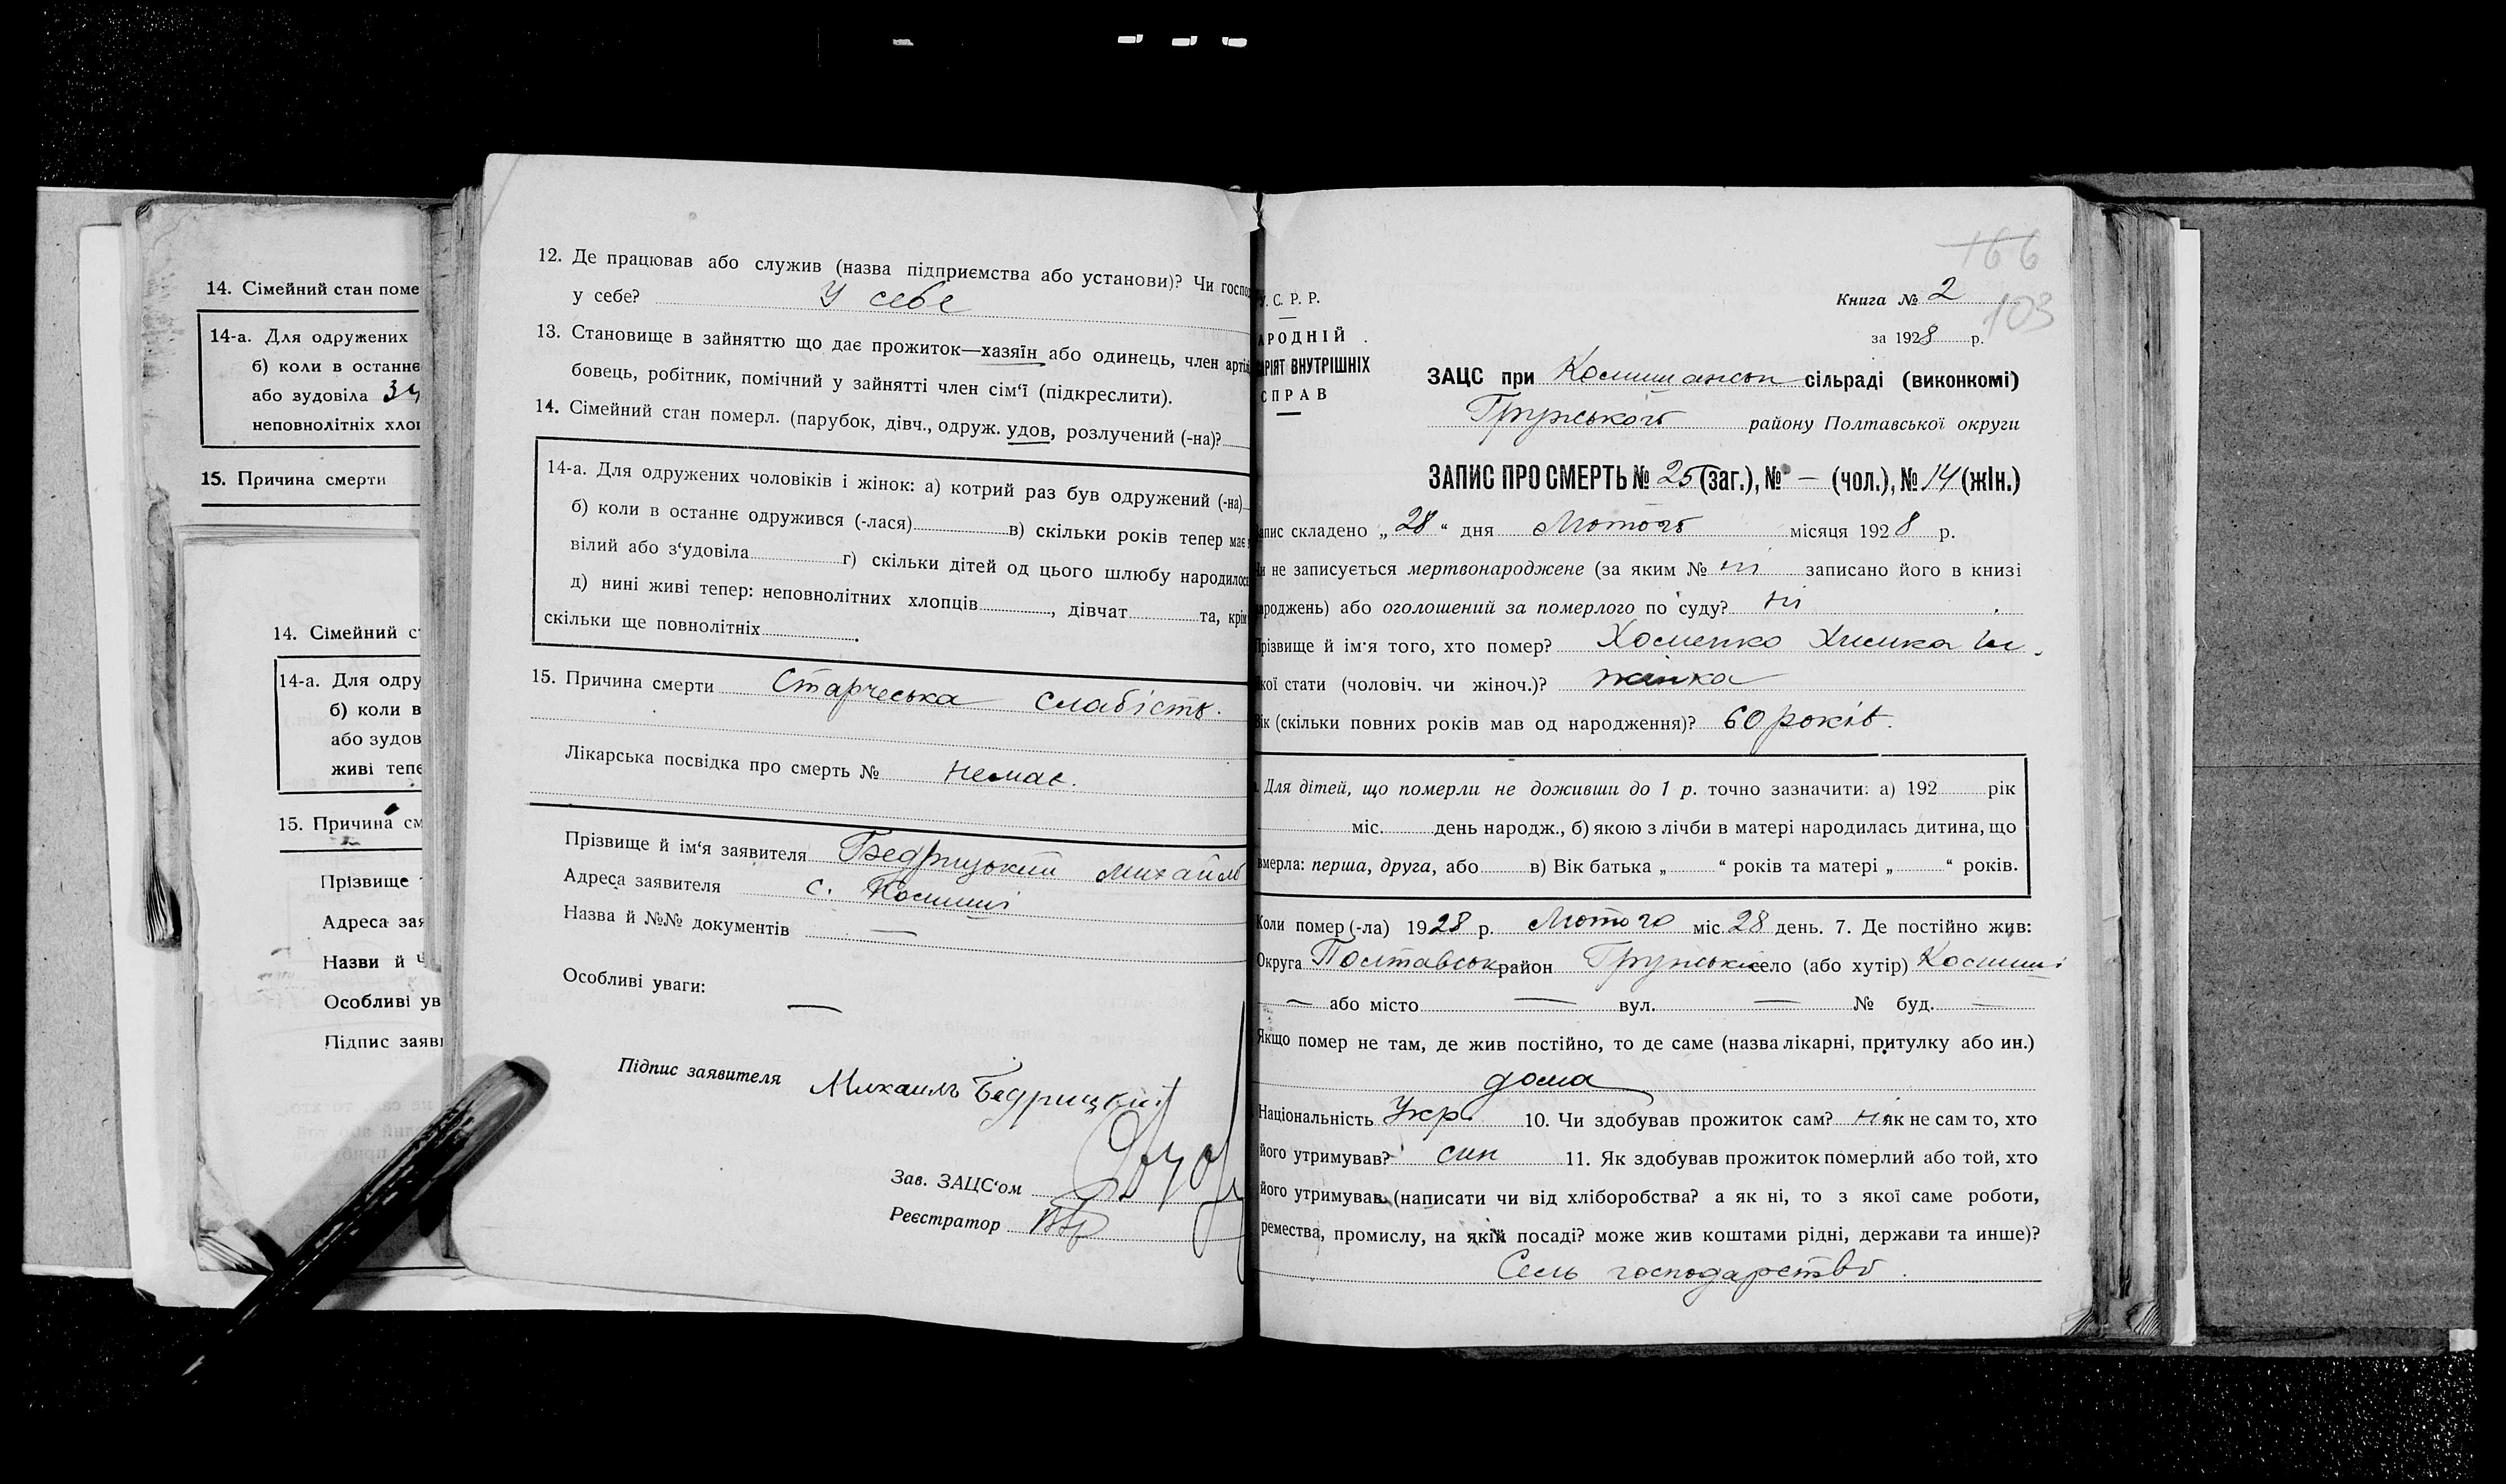 14. Сімейний стан поме
14-а. Для одружених
б) коли в останнє
або зудовіла
неповнолітніх хлоп
15. Причина смерти
14. Сімейний ст
14-а. Для одру
б) коли в
або зудов
живі тепе
15. Причина см
Прізвище
Адреса зая
Назви й
Особливі ув
Підпис заяви
12. Де працював або служив (назва підприємства або установи)? Чи господ
у себе? У себе
13. Становище в зайняттю що дає прожиток—хазяїн або одинець, член артіл
бовець, робітник, помічний у зайнятті член сім'ї (підкреслити).
14. Сімейний стан померл. (парубок, дівч., одруж. удов, розлучений (-на)?
14-а. Для одружених чоловіків і жінок: а) котрий раз був одружений (-на)
б) коли в останнє одружився (-лася) в) скільки років тепер має
вілий або з'удовіла г) скільки дітей од цього шлюбу народилося
д) нині живі тепер: неповнолітних хлопців , дівчат та, крім
скільки ще повнолітніх .
15. Причина смерти Старчеська слабість.
Лікарська посвідка про смерть № немає.
Прізвище й ім'я заявителя Бедрицький Михайло
Адреса заявителя с. Комиші
Назва й №№ документів —
Особливі уваги: —
Підпис заявителя Михаилъ Бедрицкий
Зав. ЗАЦС'ом
Реєстратор
166
Книга № 2
103
за 1928 р.
У. С. Р. Р.
АРОДНІЙ
АРІЯТ ВНУТРІШНІХ
СПРАВ
ЗАЦС при Комишанськ сільраді (виконкомі)
Грунського району Полтавської округи
ЗАПИС ПРО СМЕРТЬ № 25 (заг.), № — (чол.), № 14 (жін.)
Запис складено „28“ дня Лютого місяця 1928 р.
Чи не записується мертвонароджене (за яким № ні записано його в книзі
ароджень) або оголошений за померлого по суду? ні
Прізвище й ім'я того, хто помер? Хоменко Химка
якої стати (чоловіч. чи жіноч.)? жінка
Вік (скільки повних років мав од народження)? 60 років.
Для дітей, що померли не доживши до 1 р. точно зазначити: а) 192 рік
міс. день народж., б) якою з лічби в матері народилась дитина, що
вмерла: перша, друга, або в) Вік батька „ “ років та матері „ “ років.
Коли помер (-ла) 1928 р. Лютого міс. 28 день. 7. Де постійно жив:
Округа Полтавськ район Грунськ село (або хутір) Комиші
— або місто — вул. — № буд. —
Якщо помер не там, де жив постійно, то де саме (назва лікарні, притулку або ин.)
дома
Національність Укр. 10. Чи здобував прожиток сам? ні як не сам то, хто
його утримував? син 11. Як здобував прожиток померлий або той, хто
його утримував (написати чи від хліборобства? а як ні, то з якої саме роботи,
ремества, промислу, на якій посаді? може жив коштами рідні, держави та инше)?
Сель господарство.